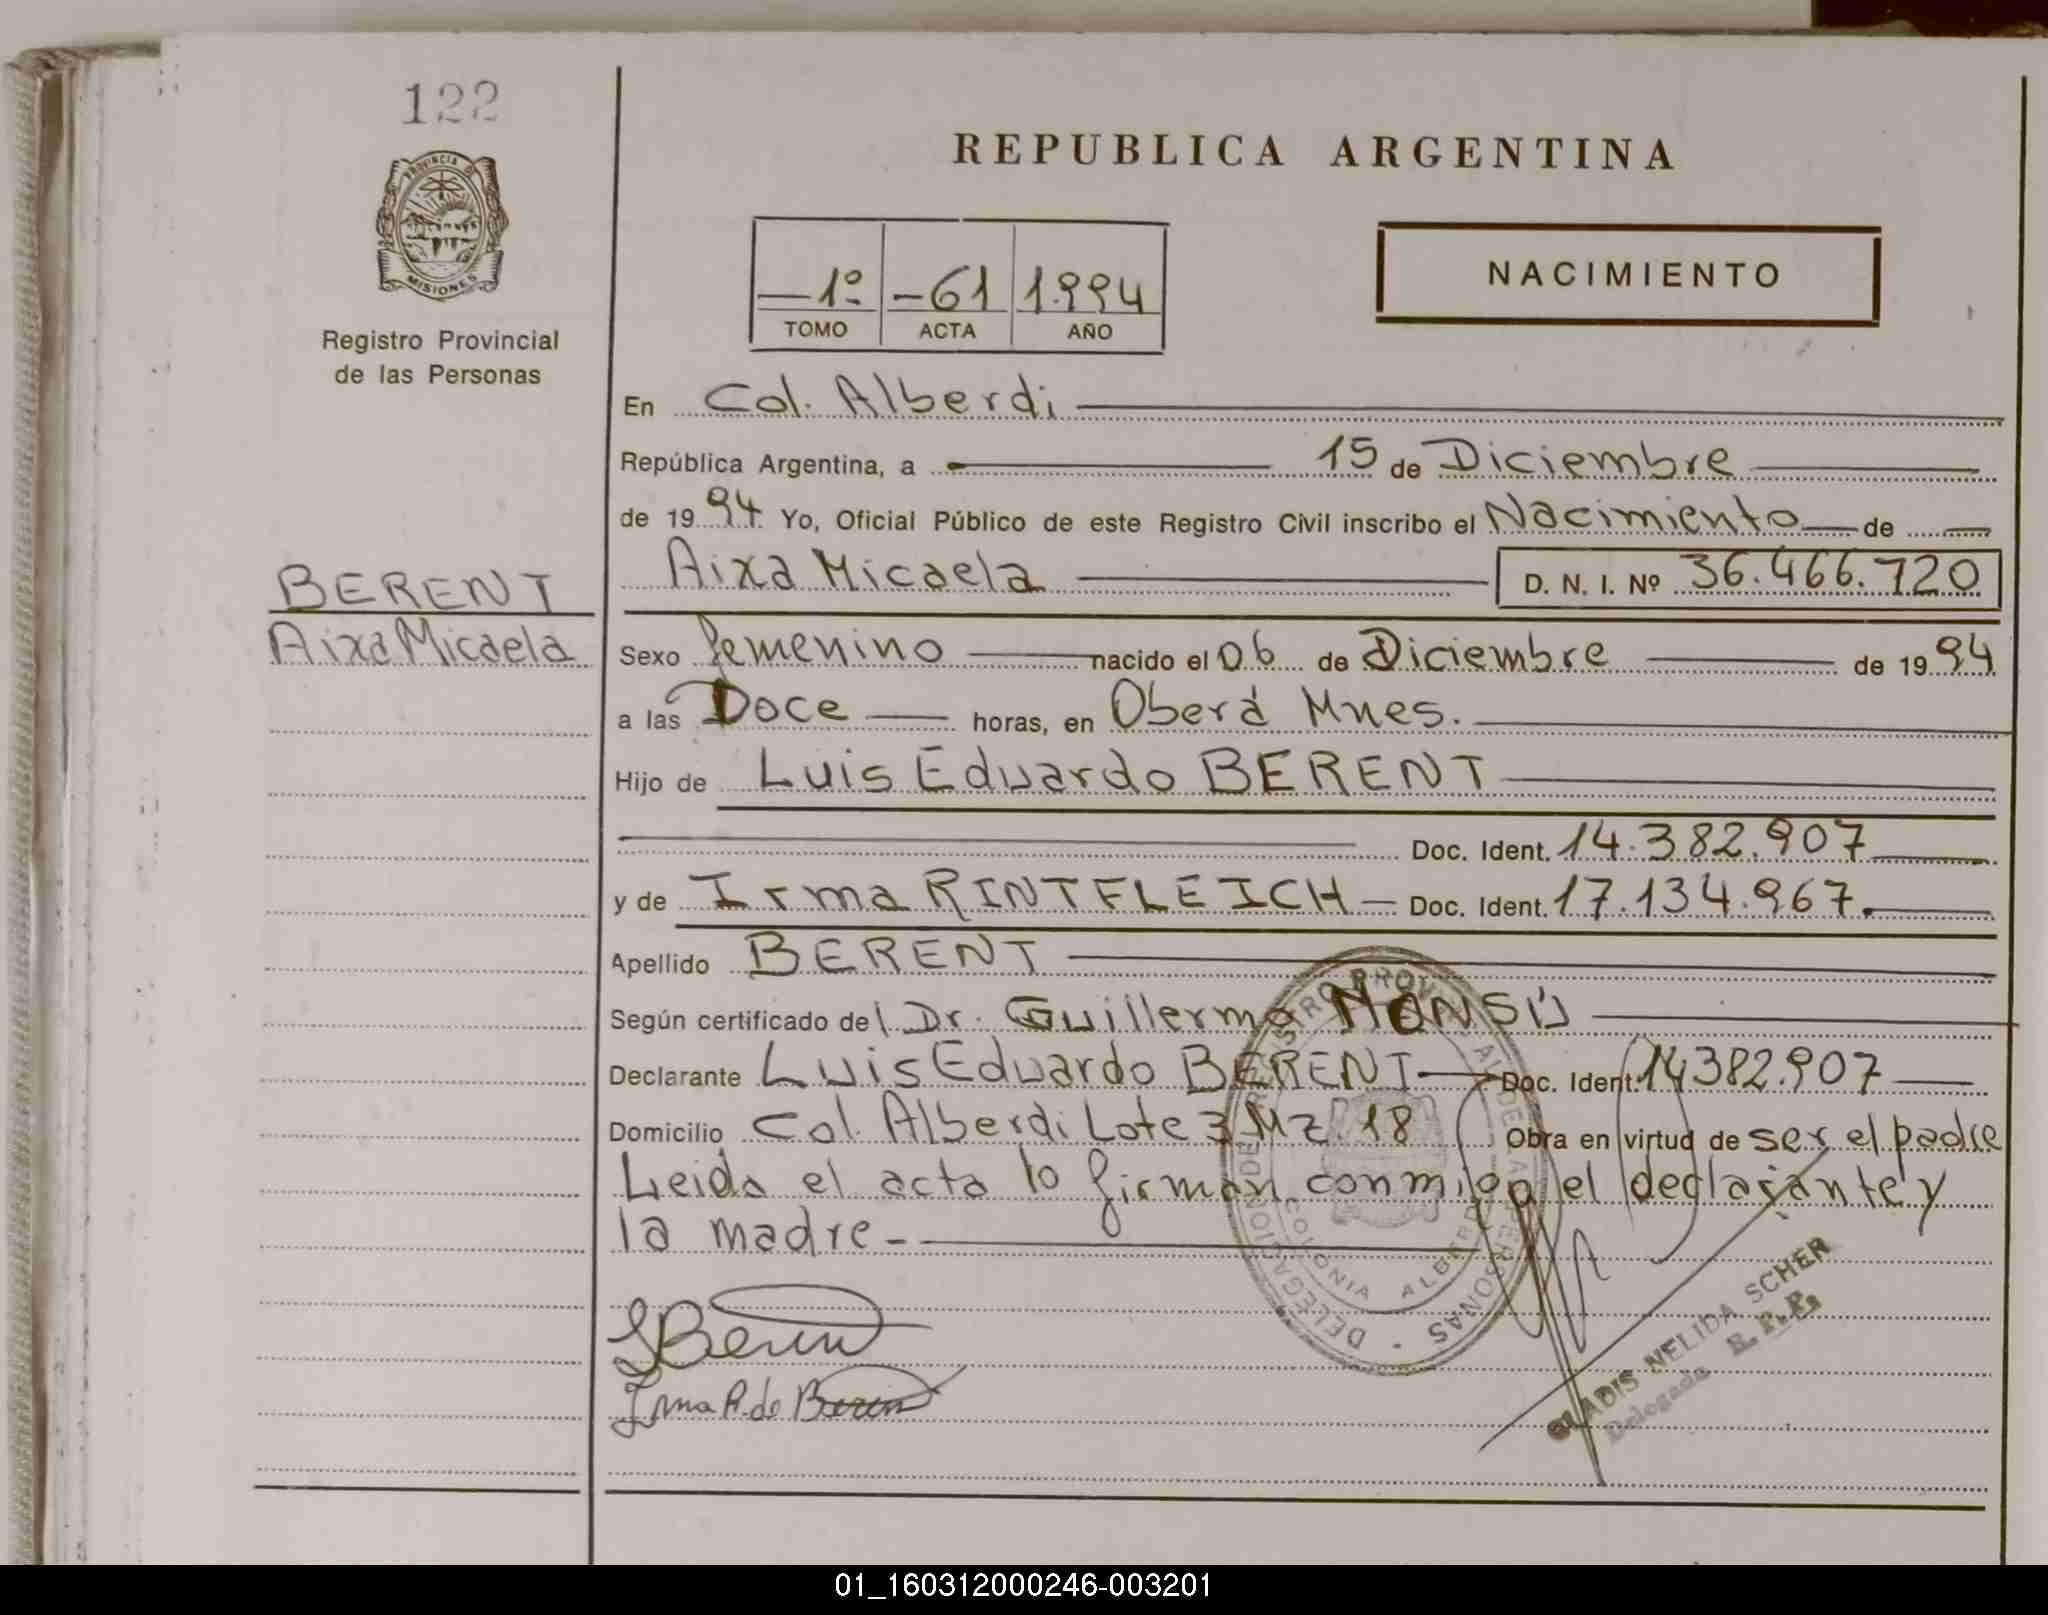 122
PROVINCIA DE
MISIONES
Registro Provincial
de las Personas
REPUBLICA ARGENTINA
—1º —61 1.994
TOMO ACTA AÑO
NACIMIENTO
En Col. Alberdi
República Argentina, a 15 de Diciembre
de 1994 Yo, Oficial Público de este Registro Civil inscribo el Nacimiento de
Aixa Micaela D. N. I. Nº 36.466.720
BERENT
Aixa Micaela
Sexo femenino nacido el 06 de Diciembre de 1994
a las Doce horas, en Oberá Mnes.
Hijo de Luis Eduardo BERENT
Doc. Ident. 14.382.907
y de Irma RINTFLEICH Doc. Ident. 17.134.967.
Apellido BERENT
Según certificado del Dr. Guillermo
Declarante Luis Eduardo BERENT Doc. Ident. 14382.907
Domicilio Col. Alberdi Lote 3 Mz. 18 Obra en virtud de ser el padre
Leida el acta lo firman conmigo el declarante y
la madre -
DELEGACION DE REGISTRO PROVINCIAL DE LAS PERSONAS
COLONIA ALBERDI
GLADIS NELIDA SCHER
Delegada R. P. P.
Irma R. de
01_160312000246-003201